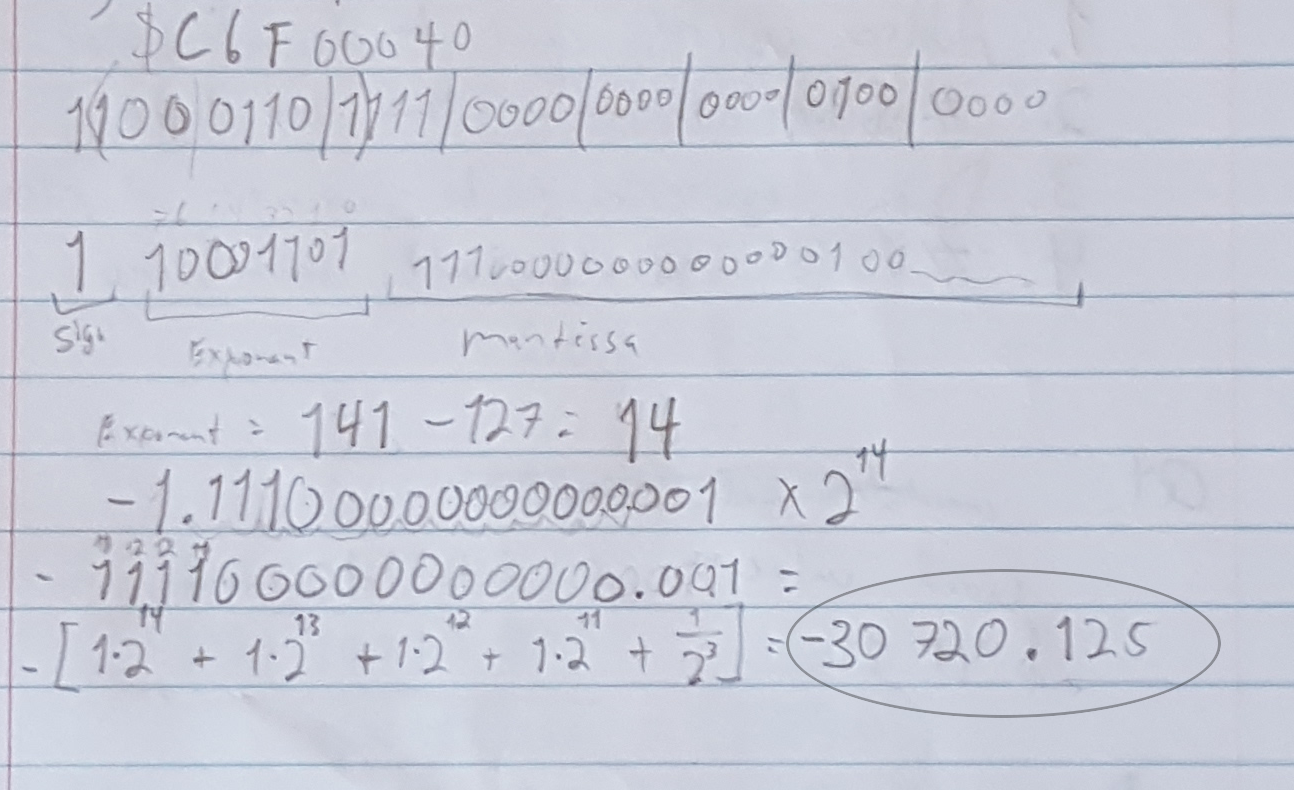 $C6F00040
1(100 0110/1)111/0000/0000/0000/0100/0000
1 10001101 11100000000000000100
Sign Exponent mantissa
Exponent = 141 - 127 = 14
-1.11100000000000001 x 2^14
- 111100000000000.001 =
- [1·2^14 + 1·2^13 + 1·2^12 + 1·2^11 + 1/2^3] = -30 720.125